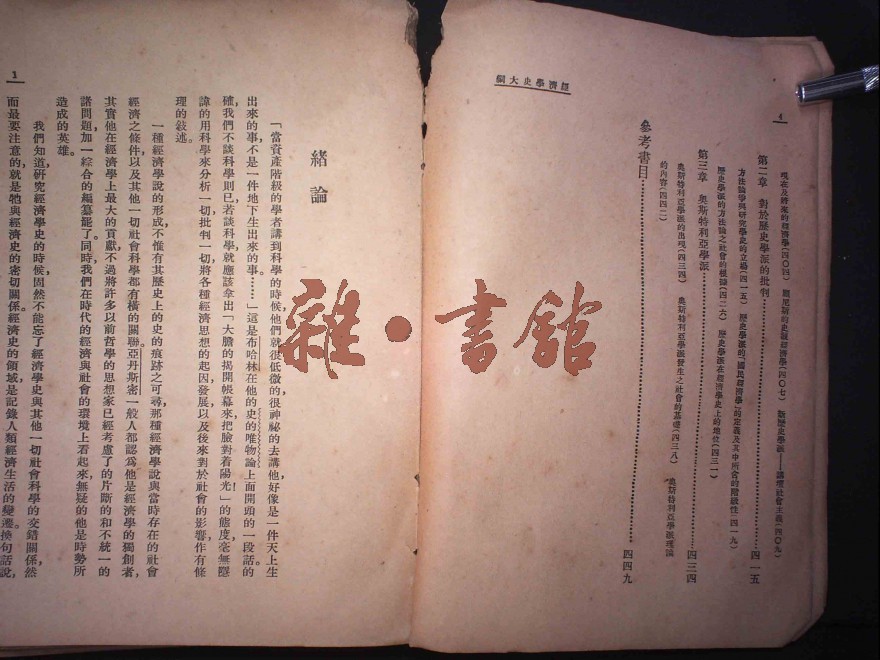 經濟學史大綱
4
現在及將來的經濟學(四〇四) 新歷史學派——講壇社會主義(四〇九)
第二章 對於歷史學派的批判 四一五
方法論爭與研究學史的立場(四一五) 歷史學派的「國民經濟學」的定義及其中所含的階級性(四一九)
歷史學派的方法論之社會的根據(四二六) 歷史學派在經濟學史上的地位(四三一)
第三章 奧斯特利亞學派 四三四
奧斯特利亞學派的出現(四三四) 奧斯特利亞學派發生之社會的基礎(四三八) 奧斯特利亞學派理論
的內容(四四二)
參考書目 四四九
緒論
「當資產階級的學者講到科學的時候,他們就很低微的,很神祕的去講他,好像是一件天上生
出來的事,不是一件地下生出來的事。……」這是布哈林在他的史的唯物論上面開頭的一段話。的
確,我們不談科學則已,若談科學就應該拿出「大膽的揭開帳幕來,把臉對着陽光!」的態度,毫無隱
諱的用科學來分析一切,批判一切,將各種經濟思想的起因,發展,以及後來對於社會的影響作有條
理的敍述。
一種經濟學說的形成,不惟有其歷史上的史的痕跡之可尋,那種經濟學說與當時存在的社會
經濟之條件,以及其他一切社會科學都有橫的關聯。亞丹斯密一般人都認為他是經濟學的獨創者,
其實他在經濟學上最大的貢獻,不過將許多以前哲學的思想家已經考慮了的片斷的和不統一的
諸問題,加一綜合的編纂罷了。同時,我們在時代的經濟與社會的環境上看起來,無疑的他是時勢所
造成的英雄。
我們知道,研究經濟學史的時候,固然不能忘了經濟學史與其他一切社會科學的交錯關係,然
而最要注意的,就是牠與經濟史的密切關係。經濟史的領域,是記錄人類經濟生活的變遷,換句話說,
1
雜·書館